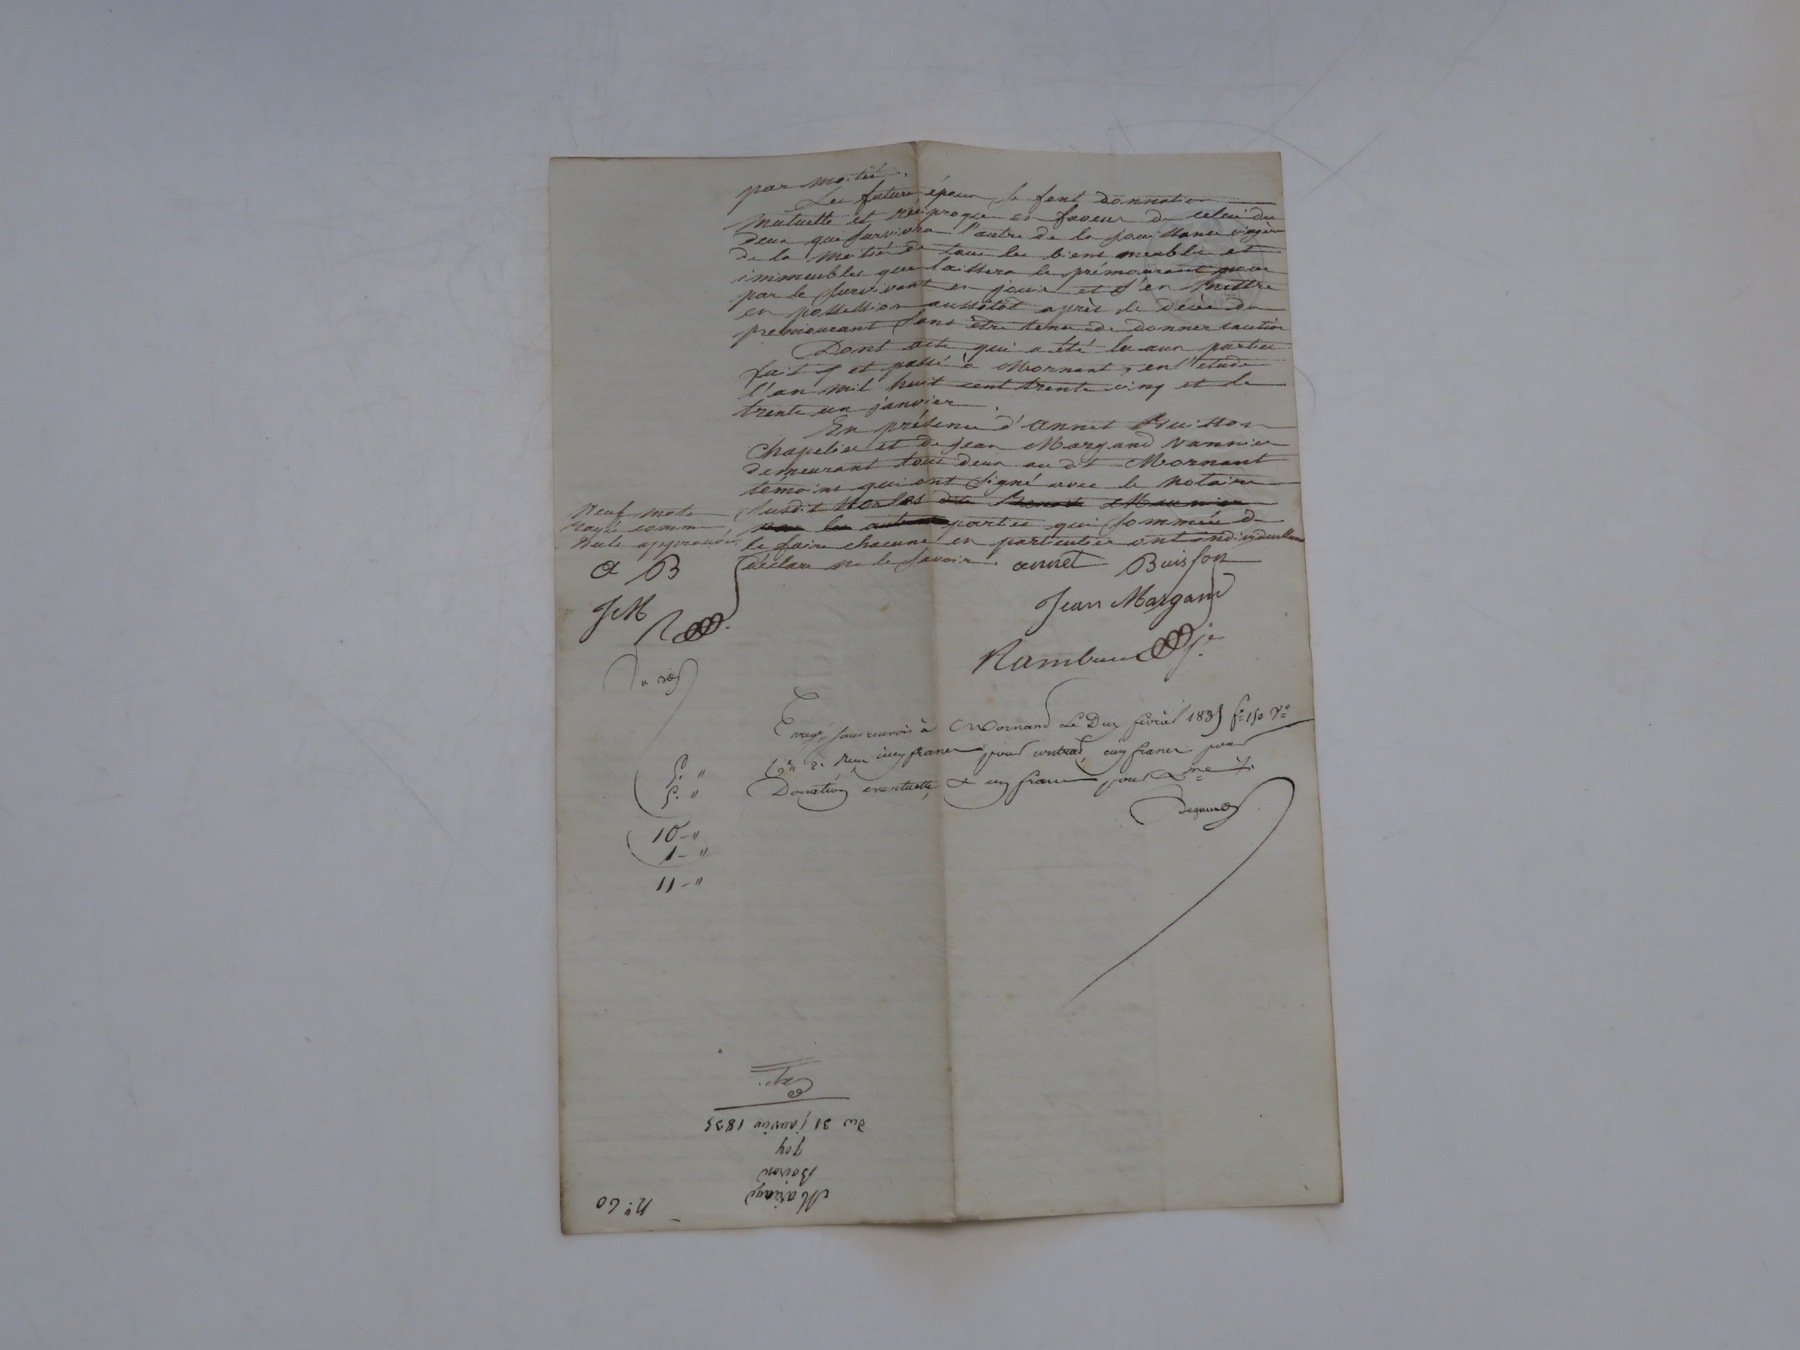 par moitié.
Les futurs époux se font donnation
mutuelle et réciproque en faveur de celui du
deux qui survivra l'autre de la jouissance viagère
de la moitié de tous les biens meubles et
immeubles que laissera le prémourant pour
par le survivant en jouir et s'en mettre
en possession aussitôt après le décès du
premourant sans être tenu de donner caution
Dont acte qui a été lu aux parties
fait et passé à Mornant, en l'étude
l'an mil huit cent trente cinq et le
trente un janvier.
En présence d'annet Buisson
chapelier et de Jean Margand vannier
demeurant tous deux au dt Mornant
témoins qui ont signé avec le notaire
susdit non les dits
les autres parties qui sommées de
le faire chacune en particulier ont individuellem
déclaré ne le savoir.
Neuf mots
rayés comme
nuls approuvés.
a B
JM
R
annet Buisson
Jean Margand
Rambaud
Enregé sans renvois à Mornand Le Deux fevrier 1835 fo 150 Vo
cinq francs pour contrat, cinq francs pour
Donation eventuelle, & un franc pour Dme
5. "
5. "
10 - "
1 - "
11 - "
no. 60
Mariage
Boiron
Joy
du 31 janvier 1835